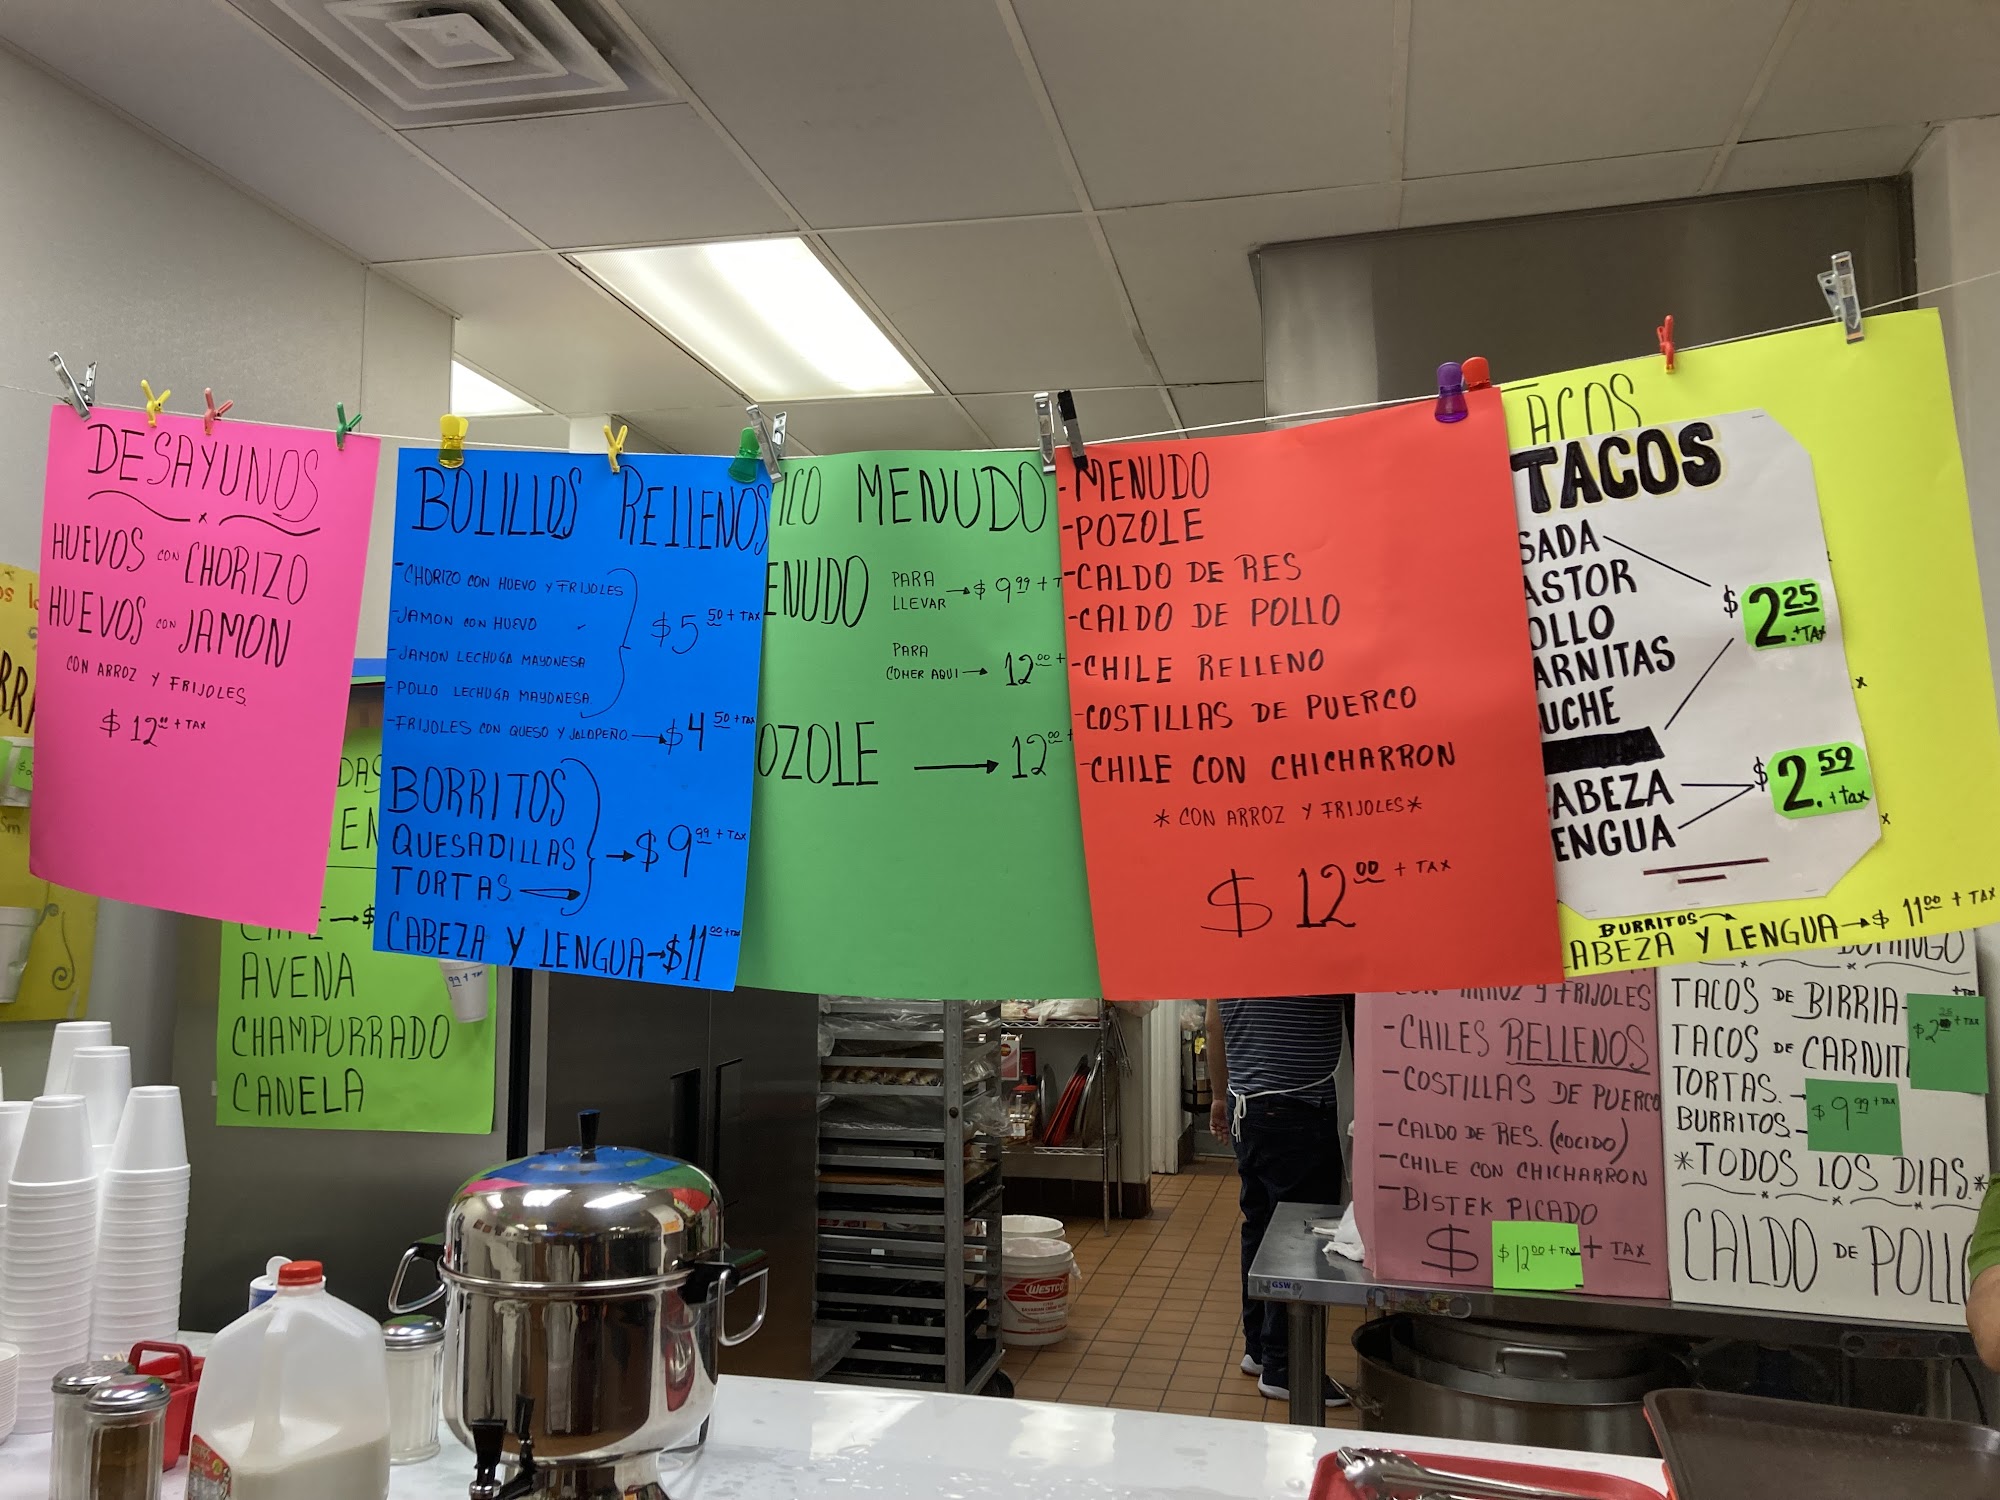 DESAYUNOS
HUEVOS CON CHORIZO
HUEVOS CON JAMON
CON ARROZ Y FRIJOLES.
$ 12.00 + TAX
BOLILLOS RELLENOS
- CHORIZO CON HUEVO Y FRIJOLES
- JAMON CON HUEVO
$ 5.50 + TAX
- JAMON LECHUGA MAYONESA
- POLLO LECHUGA MAYONESA.
- FRIJOLES CON QUESO Y JALOPEÑO. → $ 4.50 + TAX
BORRITOS
QUESADILLAS → $ 9.99 + TAX
TORTAS
CABEZA Y LENGUA → $ 11.00 + TAX
ICO MENUDO
ENUDO PARA LLEVAR → $ 9.99 + T
PARA COMER AQUI → 12.00 +
OZOLE → 12.00 +
- MENUDO
- POZOLE
- CALDO DE RES
- CALDO DE POLLO
- CHILE RELLENO
- COSTILLAS DE PUERCO
- CHILE CON CHICHARRON
* CON ARROZ Y FRIJOLES *
$ 12.00 + TAX
TACOS
TACOS
SADA
ASTOR
OLLO
ARNITAS
UCHE
$ 2.25 + TAX
ABEZA
ENGUA
$ 2.59 + tax
BURRITOS
ABEZA Y LENGUA → $ 11.00 + TAX
DAS
EN
CAFE → $
AVENA
CHAMPURRADO
CANELA
99 + TAX
CON ARROZ Y FRIJOLES
- CHILES RELLENOS
- COSTILLAS DE PUERCO
- CALDO DE RES. (COCIDO)
- CHILE CON CHICHARRON
- BISTEK PICADO
$ $ 12.00 + TAX + TAX
DOMINGO
TACOS DE BIRRIA -
+ TAX
$ 2.25 + TAX
TACOS DE CARNIT
TORTAS. -
BURRITOS. -
$ 9.99 + TAX
* TODOS LOS DIAS. *
CALDO DE POLLO
WESTCO
GSW